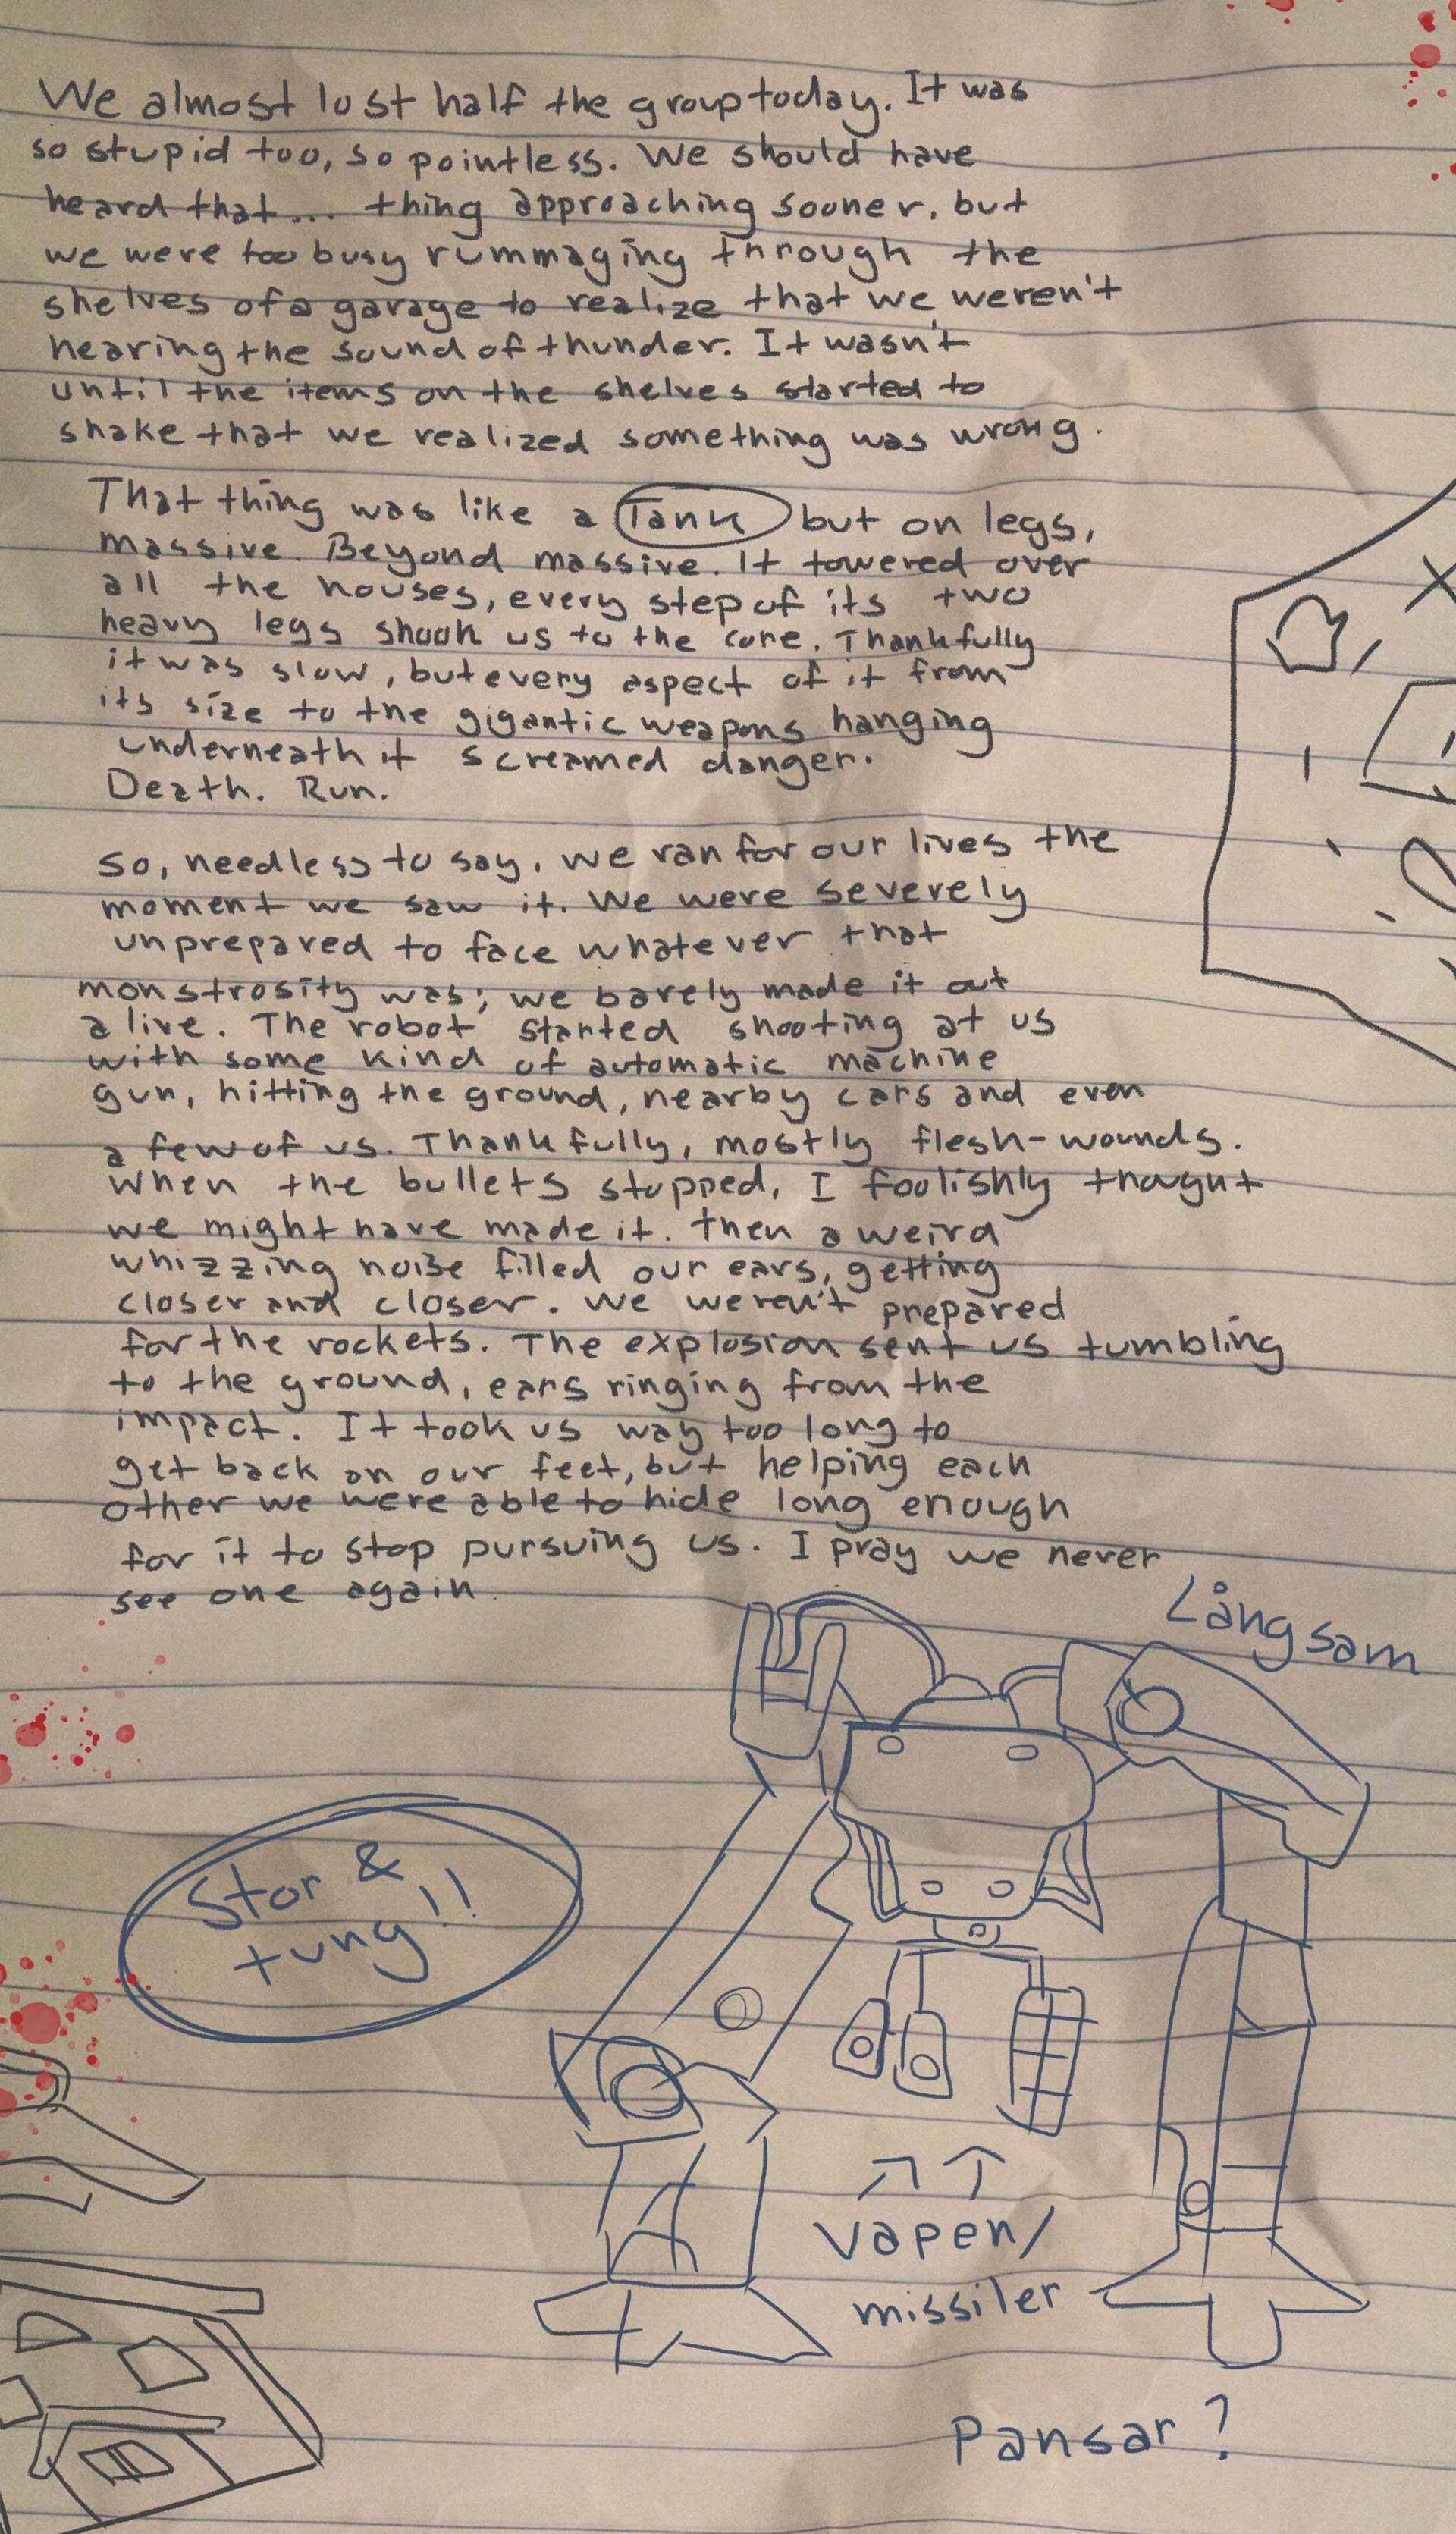 We almost lost half the group today. It was
so stupid too, so pointless. We should have
heard that... thing approaching sooner, but
we were too busy rummaging through the
shelves of a garage to realize that we weren't
hearing the sound of thunder. It wasn't
until the items on the shelves started to
shake that we realized something was wrong.
That thing was like a Tank but on legs,
massive. Beyond massive. It towered over
all the houses, every step of its two
heavy legs shook us to the core. Thankfully
it was slow, but every aspect of it from
its size to the gigantic weapons hanging
underneath it screamed danger.
Death. Run.
So, needless to say, we ran for our lives the
moment we saw it. We were severely
unprepared to face whatever that
monstrosity was; we barely made it out
alive. The robot started shooting at us
with some kind of automatic machine
gun, hitting the ground, nearby cars and even
a few of us. Thankfully, mostly flesh-wounds.
When the bullets stopped, I foolishly thougut
we might have made it. Then a weird
whizzing noise filled our ears, getting
closer and closer. We weren't prepared
for the rockets. The explosion sent us tumbling
to the ground, ears ringing from the
impact. It took us way too long to
get back on our feet, but helping each
other we were able to hide long enough
for it to stop pursuing us. I pray we never
see one again
Långsam
Stor &
tung!!
Vapen/
missiler
Pansar?